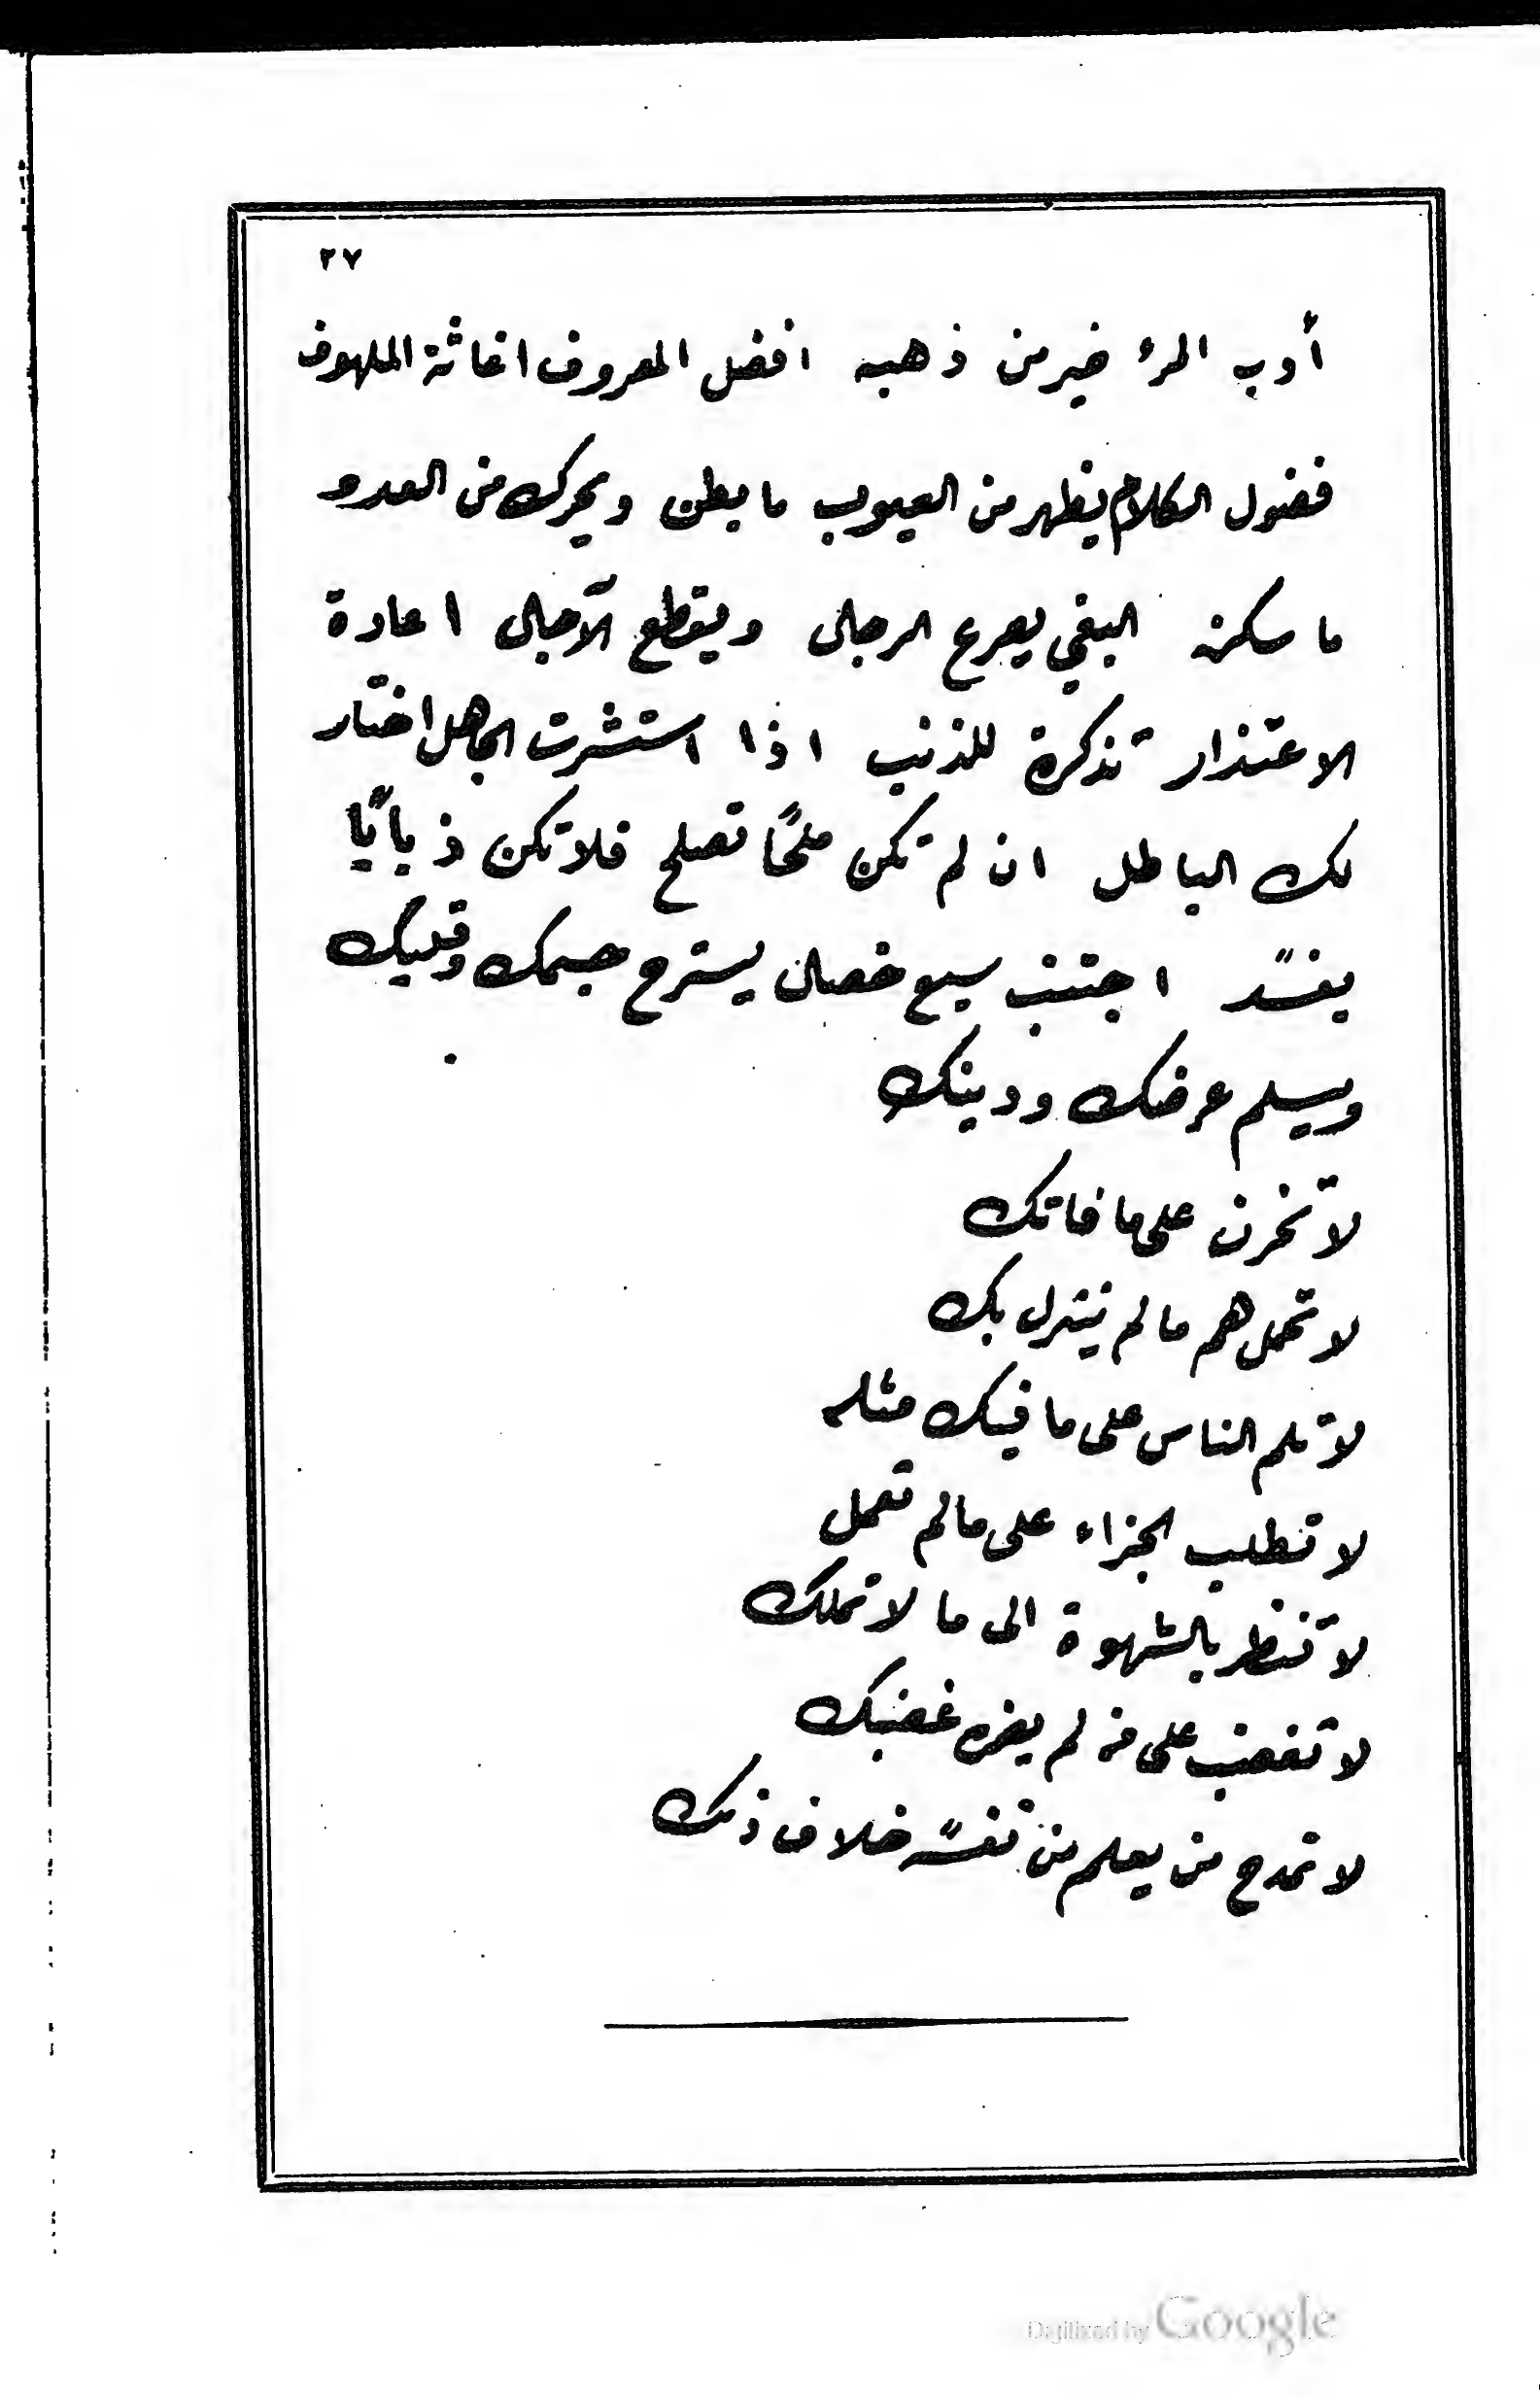 ٢٧
أدب المرء خير من ذهبه افضل المعروف اغاثة الملهوف
فضول الكلام يظهر من العيوب ما بطن ويحرك من العدو
ما سكن البغي يصرع الرجال ويقطع الآجال اعادة
الاعتذار تذكرة للذنب اذا استشرت الجاهل اختار
لك الباطل ان لم تكن ملحًا تصلح فلا تكن ذبابًا
يفسد اجتنب سبع خصال يسترح جسمك وقلبك
ويسلم عرضك ودينك
لا تحزن على ما فاتك
لا تحمل هم ما لم ينزل بك
لا تلم الناس على ما فيك مثله
لا تطلب الجزاء على ما لم تعمل
لا تنظر بالشهوة الى ما لا تملك
لا تغضب على من لم يضره غضبك
لا تمدح من يعلم من نفسه خلاف ذلك
Digitized by Google